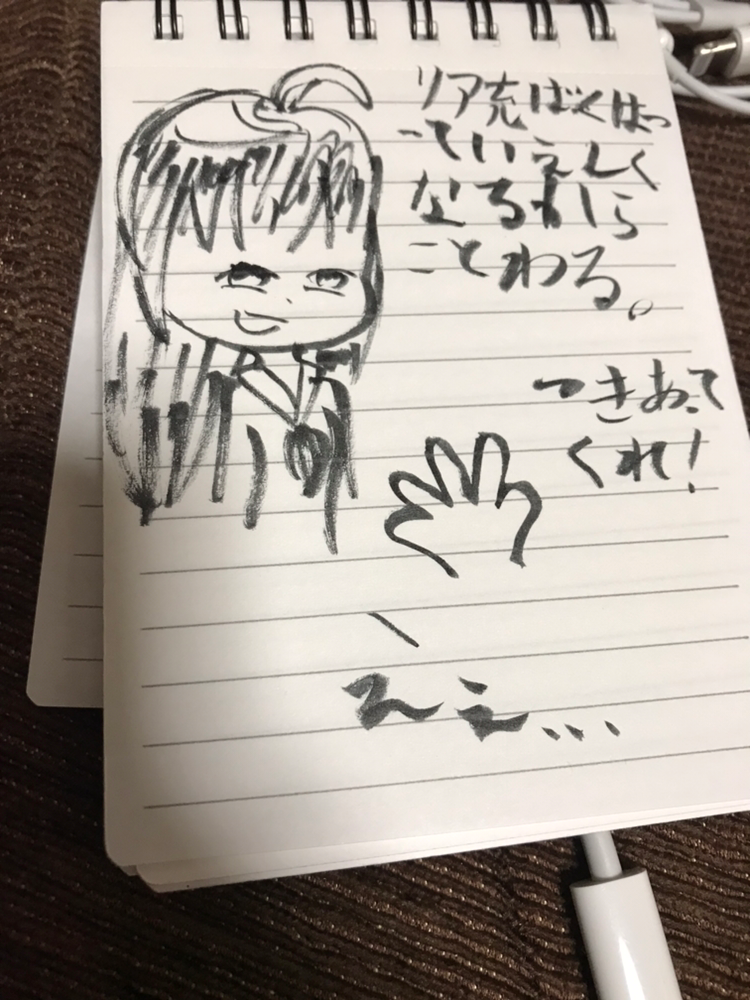 リア充ばくはつ
っていえんく
なるからし
ことわる。
つきあって
くれ！
ええ…